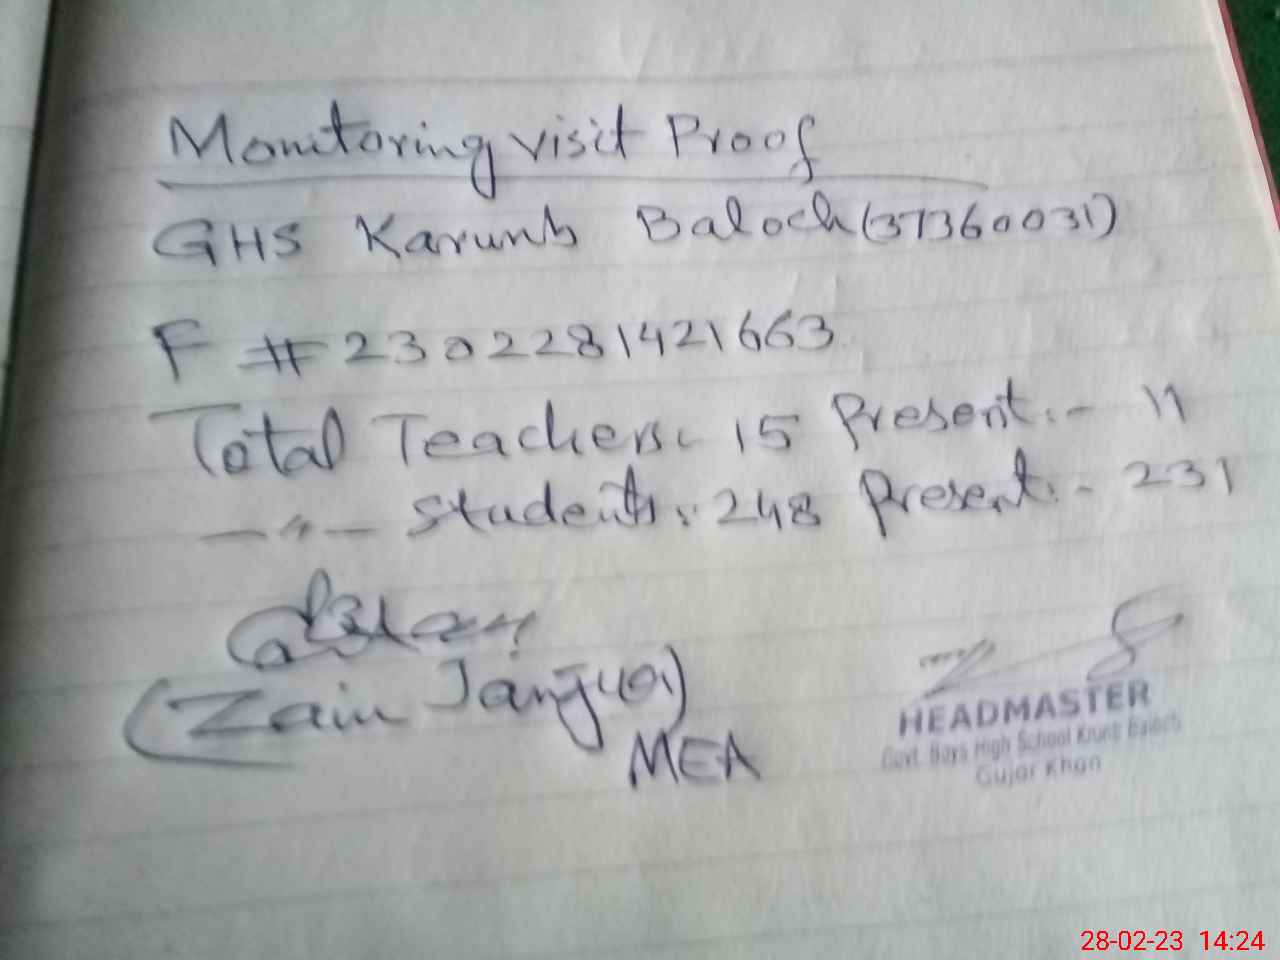 Monitoring visit Proof
GHS Karunb Baloch (37360031)
F # 2302281421663
Total Teachers:- 15 Present:- 11
—〃— Students:- 248 Present:- 231
(Zain Janjua)
MEA
HEADMASTER
Govt. Boys High School Krunb Baloch
Gujar Khan
28-02-23 14:24